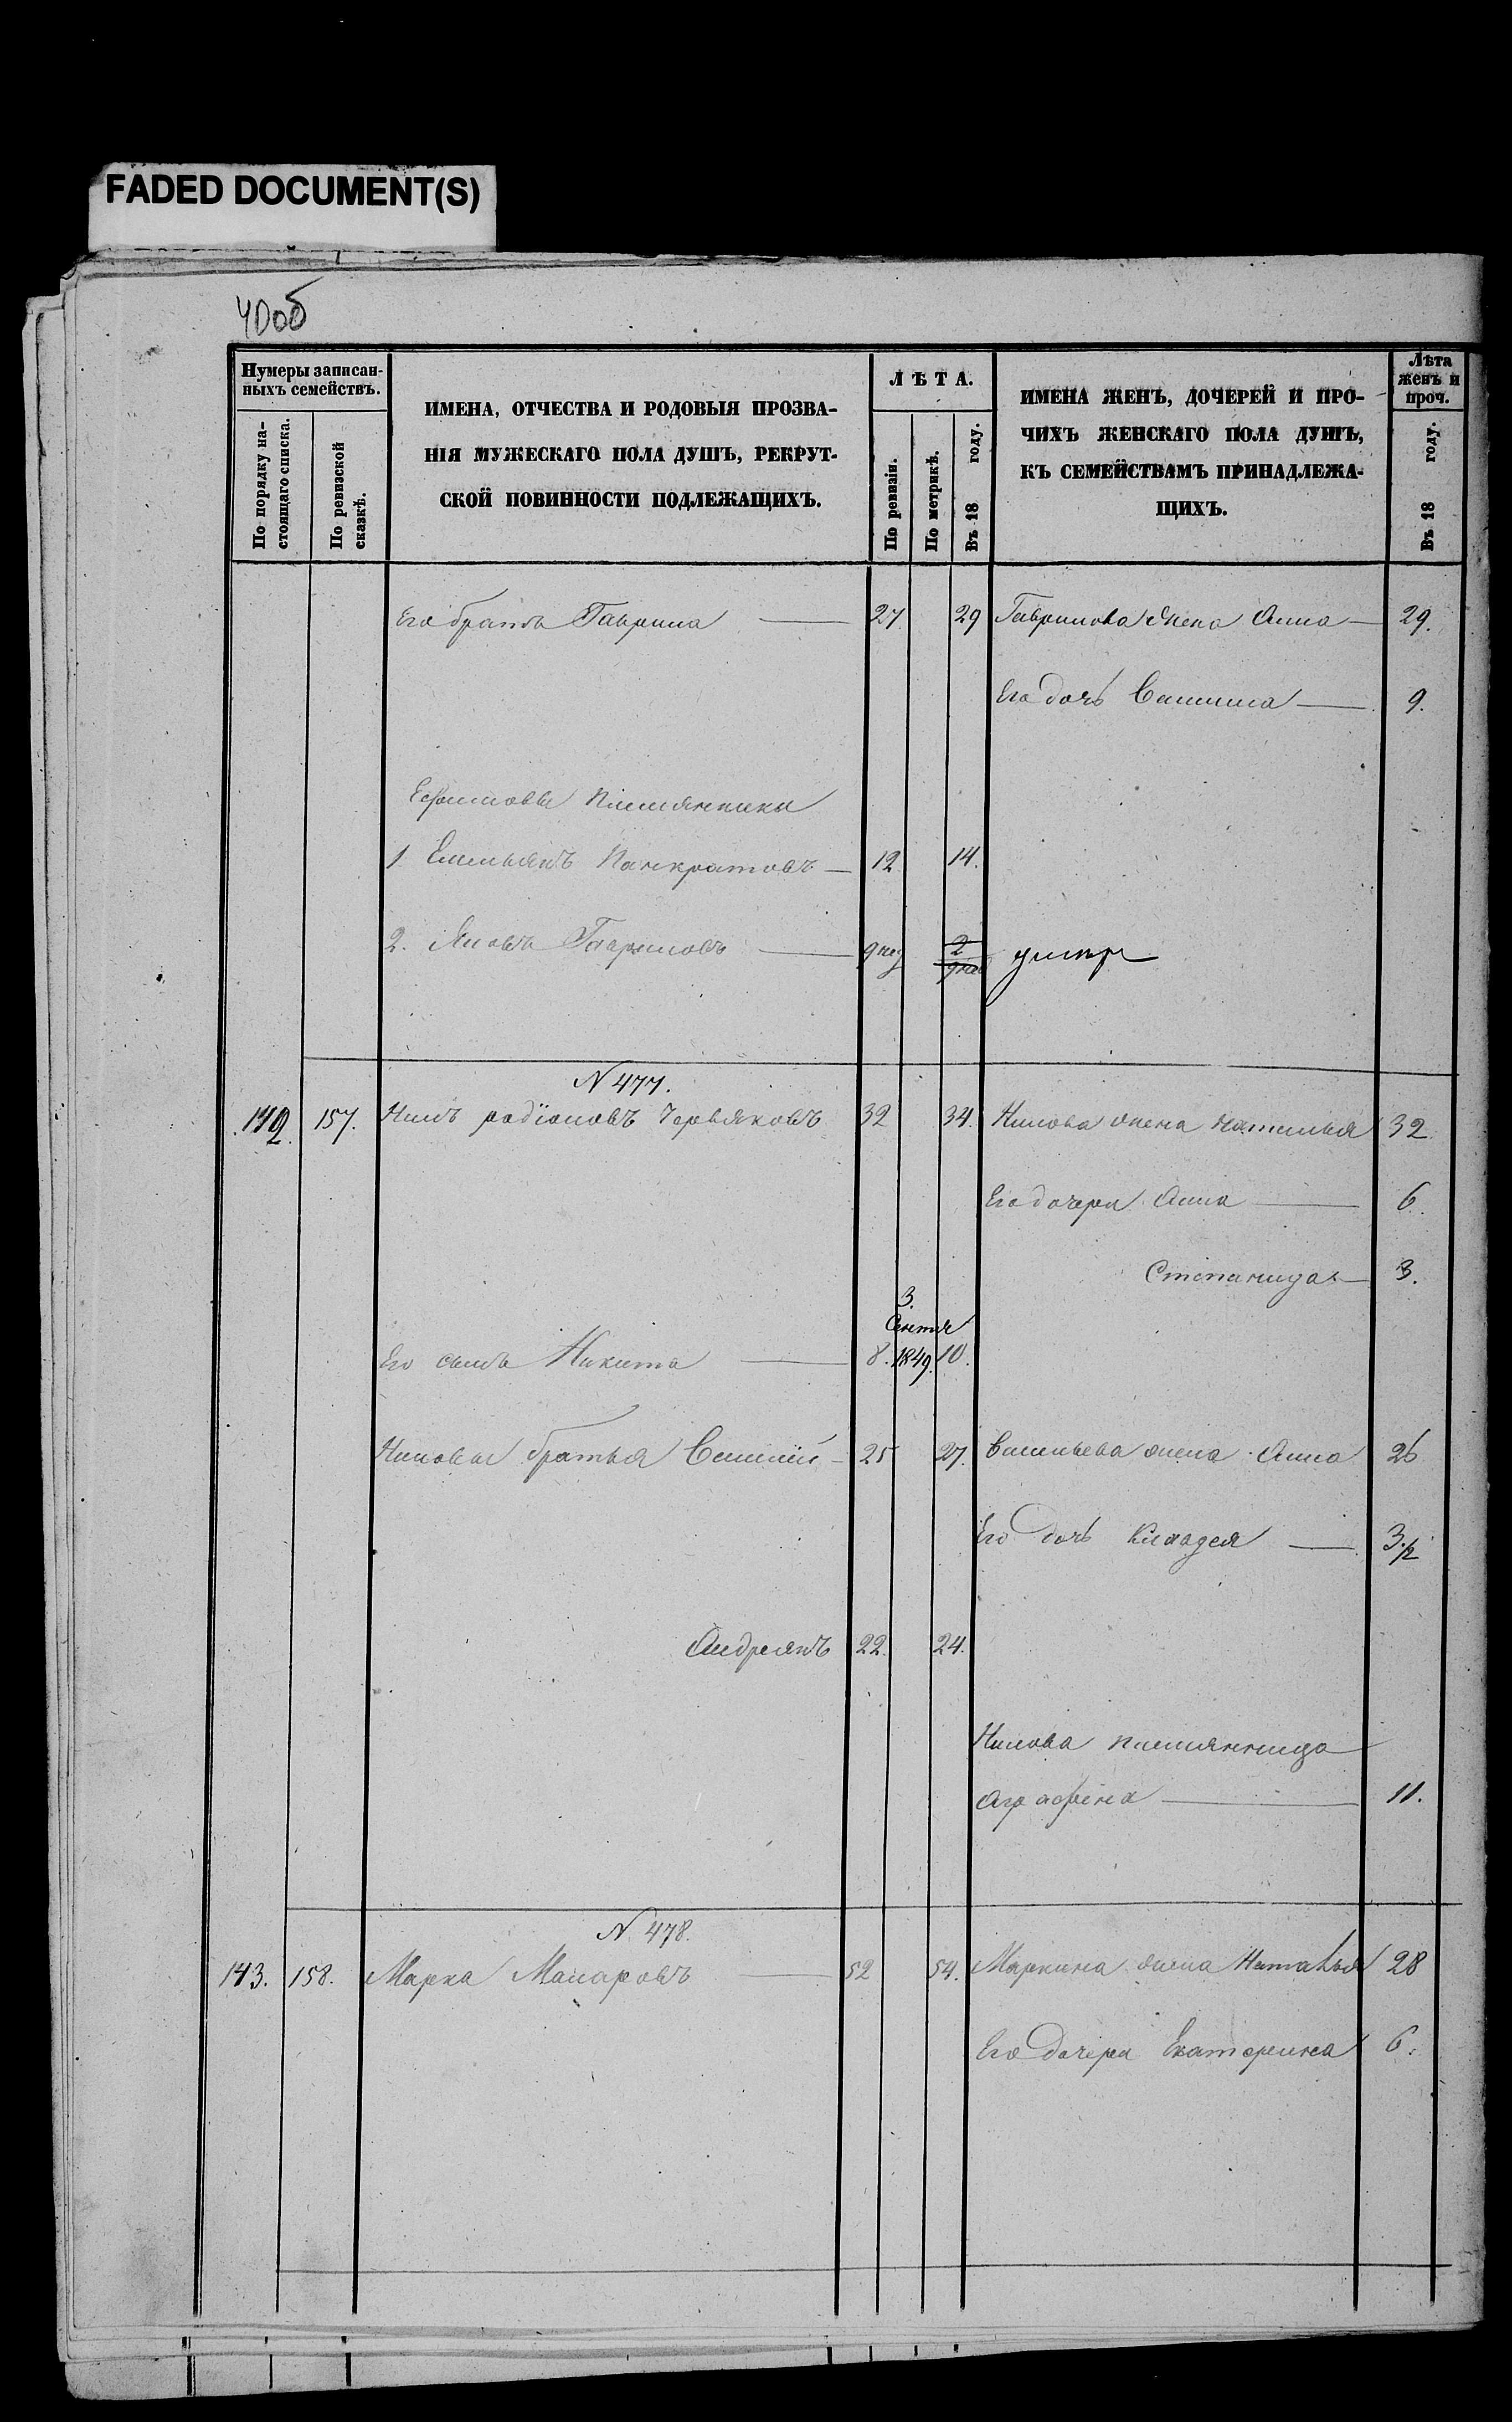 FADED DOCUMENT(S)
40об
Нумеры записан-
ныхъ семействъ.
По порядку на-
стоящаго списка.
По ревизской
сказкѣ.
ИМЕНА, ОТЧЕСТВА И РОДОВЫЯ ПРОЗВА-
НІЯ МУЖЕСКАГО ПОЛА ДУШЪ, РЕКРУТ-
СКОЙ ПОВИННОСТИ ПОДЛЕЖАЩИХЪ.
ЛѢТА.
По ревизіи.
По метрикѣ.
Въ 18 году.
ИМЕНА ЖЕНЪ, ДОЧЕРЕЙ И ПРО-
ЧИХЪ ЖЕНСКАГО ПОЛА ДУШЪ,
КЪ СЕМЕЙСТВАМЪ ПРИНАДЛЕЖА-
ЩИХЪ.
Лѣта
женъ и
проч.
Въ 18 году.
Его братъ Гаврила — 27. 29 Гаврилова жена Анна — 29.
Его дочь — 9.
Ефимовы племянники
1. Емельянъ Панкратовъ — 12 14.
2. Яковъ Гавриловъ — 9 нед 2 9 нед умеръ
N 477.
142. 157. Нилъ родіоновъ Червяковъ 32 34. Нилова жена Наталья 32.
Его дочери Анна — 6.
Степанида — 3.
3.
Сентя
Его сынъ Никита — 8. 1849. 10.
Ниловы братья Василій — 25 27. Васильева жена Анна 26
Его дочь Клавдея — 3./2
Андреянъ 22. 24.
Нилова племянница
Аграфена — 11.
N 478.
143. 158. Марка Макаровъ — 52 54. Маркина жена Наталья 28
Его дочери Екатерина 6.